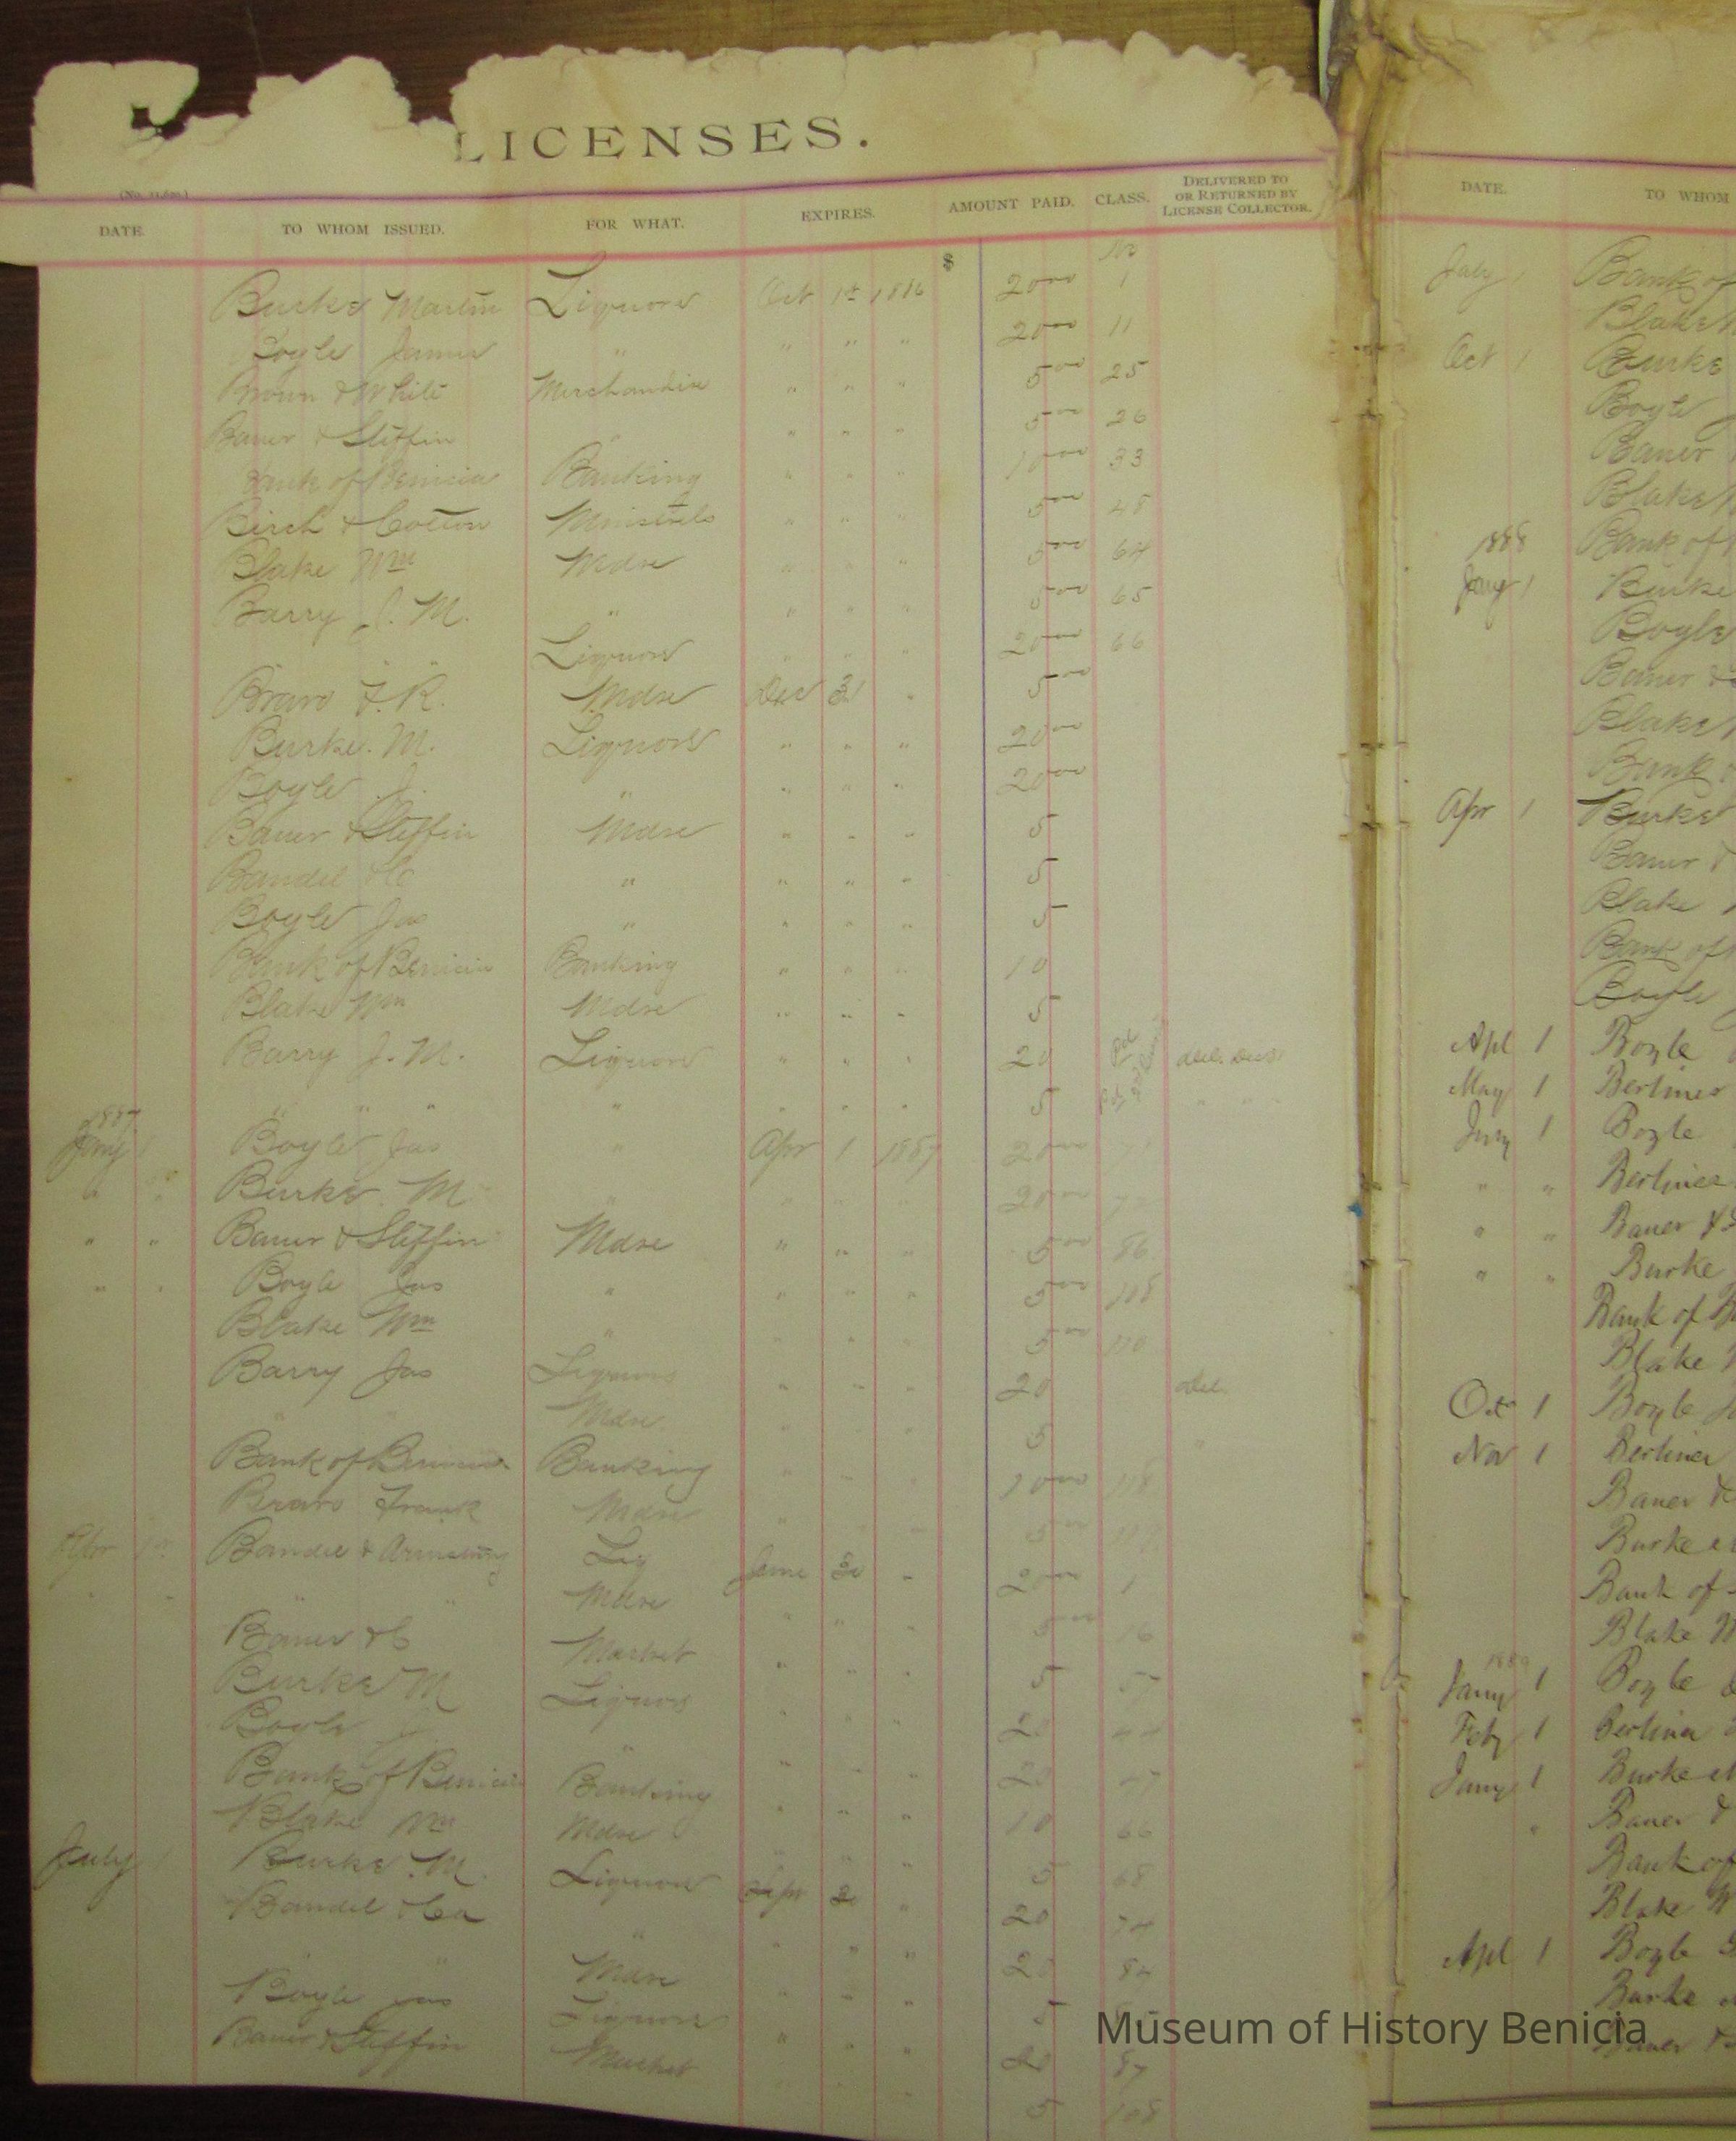 LICENSES.
DATE. TO WHOM ISSUED. FOR WHAT. EXPIRES. AMOUNT PAID. CLASS. DELIVERED TO OR RETURNED BY LICENSE COLLECTOR.
$ No
Burke Martin Liquors Oct 1st 1886 20 00 1
Boyle James " " " " 20 00 11
Brown & White Merchandise " " " 5 00 25
Bauer & Steffin " " " " 5 00 26
Bank of Benicia Banking " " " 10 00 33
Birch & Cotton Minstrels " " " 5 00 48
Blake Wm Mdse " " " 5 00 64
Barry J. M. " " " " 5 00 65
Liquors " " " 20 00 66
Bravo F. R. Mdse Dec 31 " 5 00
Burke. M. Liquors " " " 20 00
Boyle J. " " " " 20 00
Bauer & Steffin Mdse " " " 5
Bandel & C " " " " 5
Boyle Jas " " " " 5
Bank of Benicia Banking " " " 10
Blake Wm Mdse " " " 5
Barry J. M. Liquors " " " 20
" " " " " " " 5
1887
Jany 1 Boyle Jas " Apr 1 1887 20 00 71
" " Burke. M " " " " 20 00 72
" " Bauer & Steffin Mdse " " " 5 00 86
" " Boyle Jas " " " " 5 00 108
Blake Wm " " " " 5 00 110
Barry Jas Liquors " " " 20 Del.
Mdse " " " 5 "
Bank of Benicia Banking " " " 10 00 118
Bravo Frank Mdse " " " 5 00
Apr 1 Bandel & Armstrong Liq June 30 " 20 00 1
" " " " Mdse " " " 5 00 16
Bauer & C Market " " " 5
Burke M Liquors " " " 20
Boyle J " " " " 20 47
Bank of Benicia Banking " " " 10 66
Blake Wm Mdse " " " 5 68
July 1 Burke. M. Liquors Sept 30 " 20 74
Bandel & Co " " " " 20 84
" " Mdse " " " 5
Boyle Jas Liquors " " " 20 87
Bauer & Steffin Market " " " 5 108
DATE. TO WHOM
July 1 Bank of
Blake
Oct 1 Burke
Boyle
Bauer
Blake
1888 Bank of
Jany 1 Burke
Boyle
Bauer &
Blake
Bank
Apr 1 Burke
Bauer &
Blake
Bank of
Boyle
Apl 1 Boyle
May 1 Berliner
July 1 Boyle
" " Berliner
" " Bauer &
" " Burke
Bank of
Blake
Oct 1 Boyle
Nov 1 Berliner
Bauer &
Burke
Bank of
Blake
1889
Jany 1 Boyle
Feby 1 Berliner
Jany 1 Burke
" Bauer &
Bank of
Blake
Apl 1 Boyle
Burke
Bauer &
Museum of History Benicia